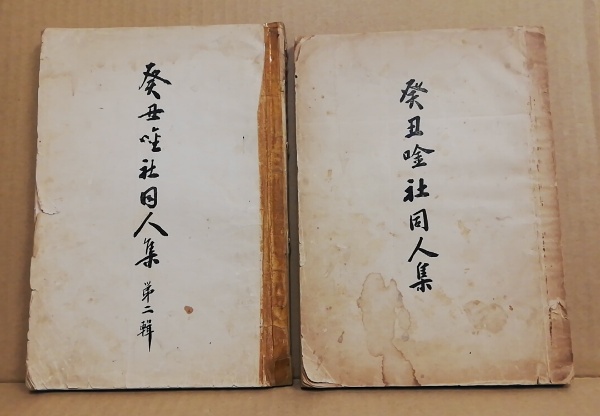 癸丑唫社同人集
癸丑唫社同人集 第二輯